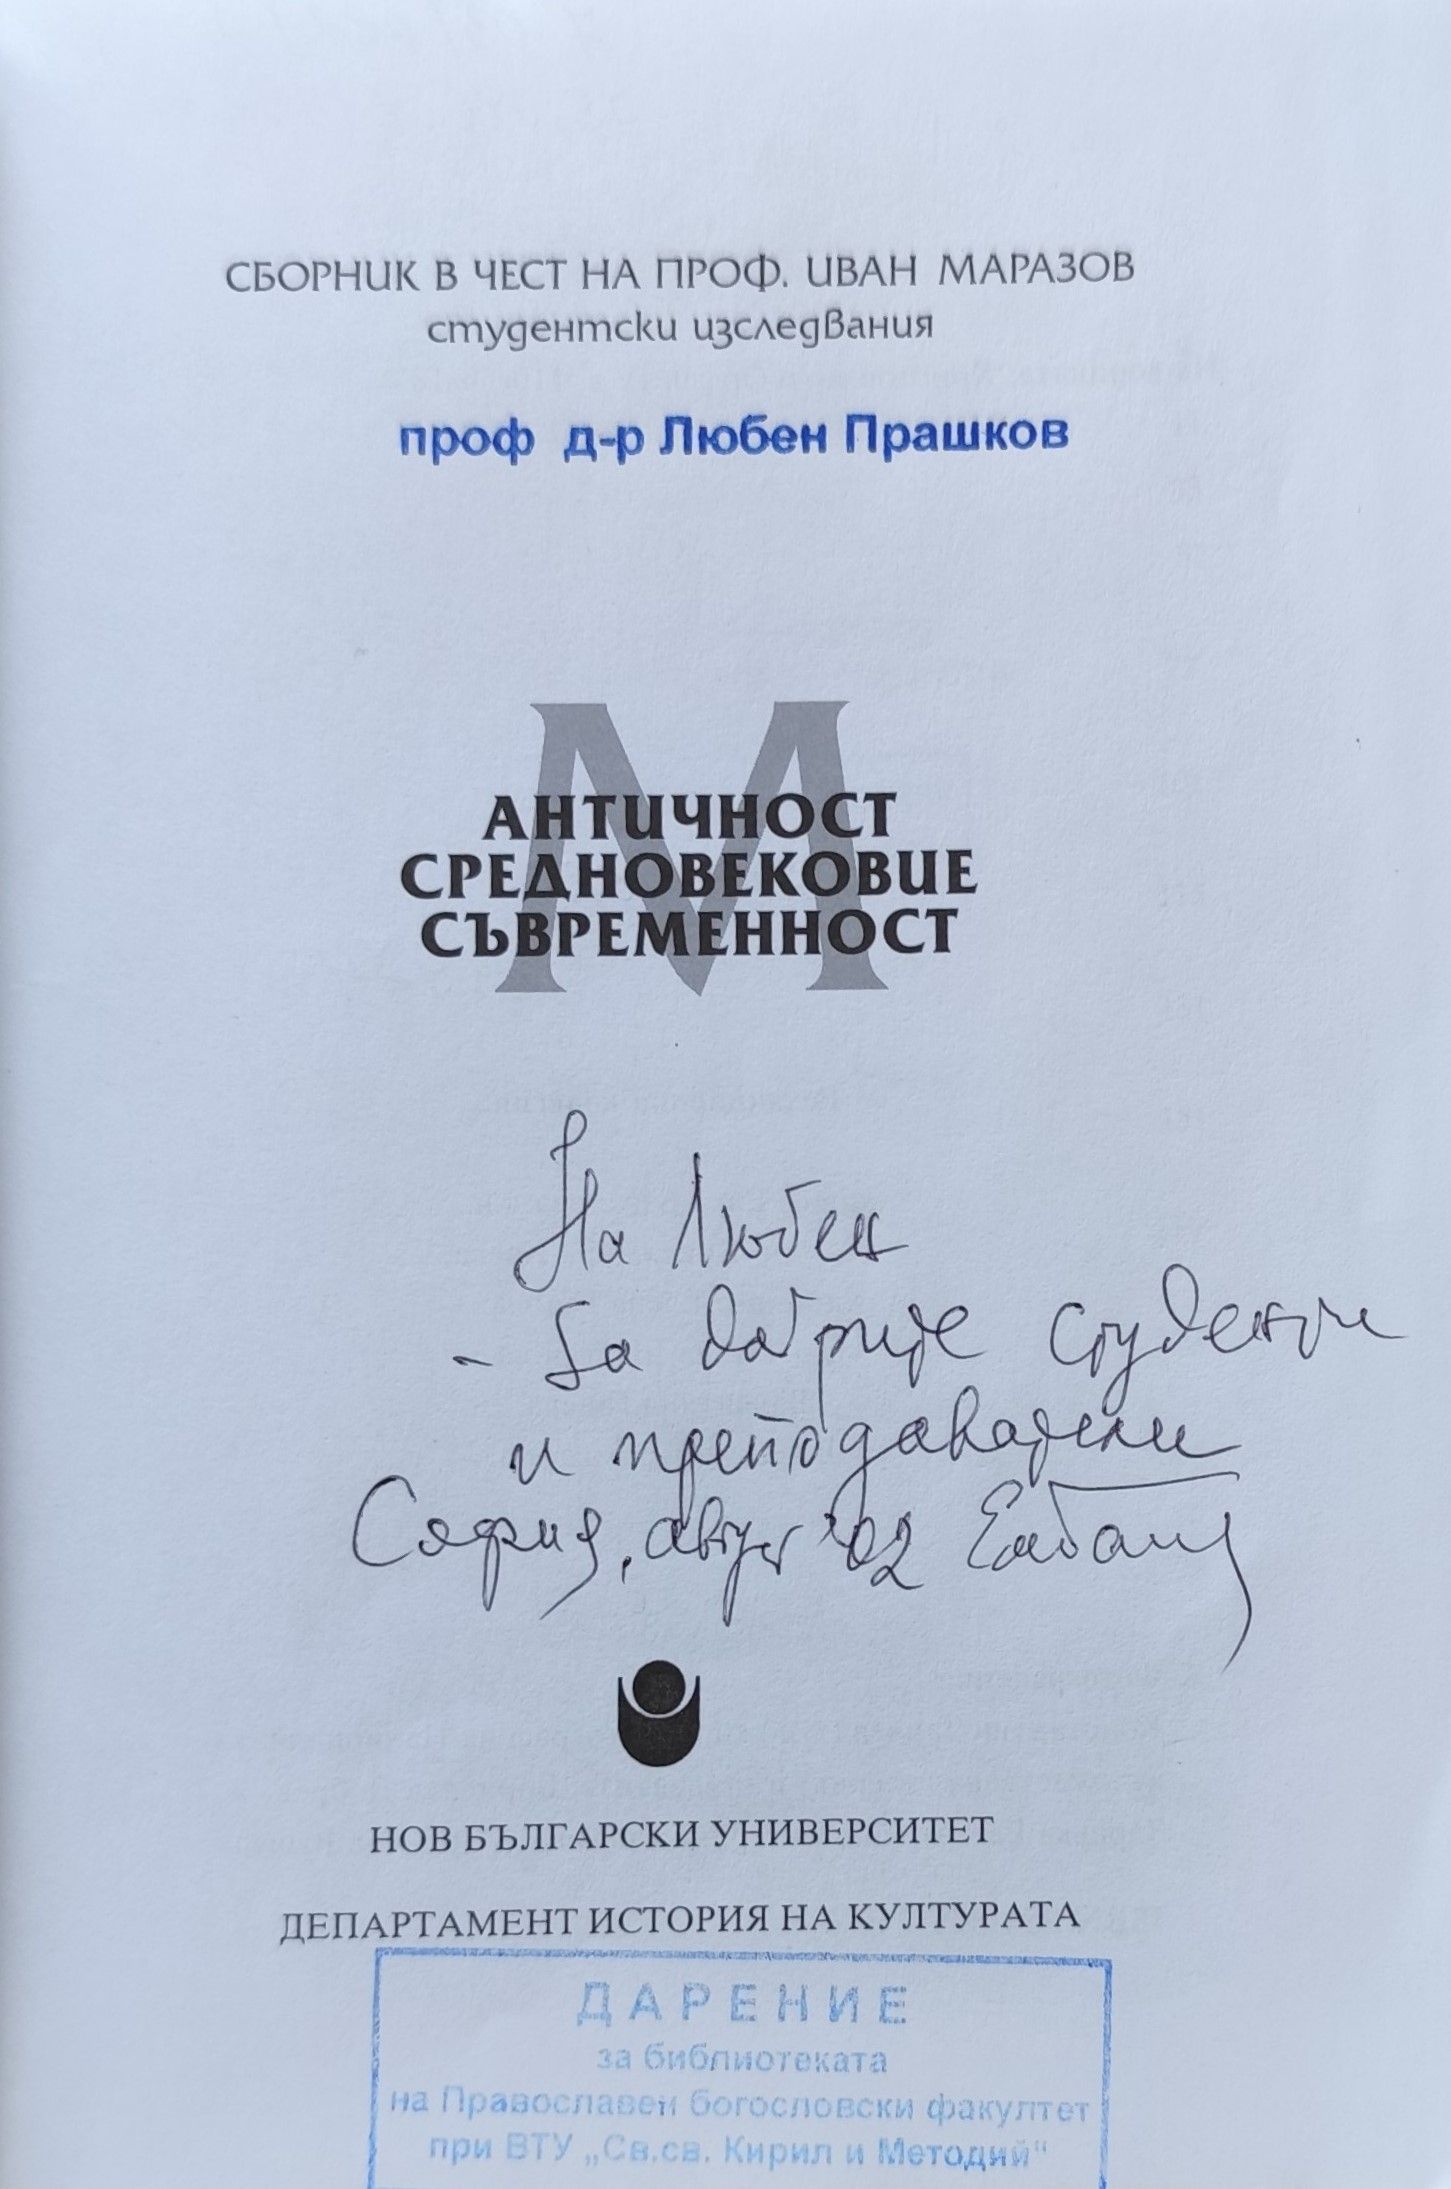 СБОРНИК В ЧЕСТ НА ПРОФ. ИВАН МАРАЗОВ
студентски изследвания
проф д-р Любен Прашков
М
АНТИЧНОСТ
СРЕДНОВЕКОВИЕ
СЪВРЕМЕННОСТ
На Любен
- За добрите студенти
и преподаватели
София, август '02
НОВ БЪЛГАРСКИ УНИВЕРСИТЕТ
ДЕПАРТАМЕНТ ИСТОРИЯ НА КУЛТУРАТА
ДАРЕНИЕ
за библиотеката
на Православен богословски факултет
при ВТУ „Св.св. Кирил и Методий“